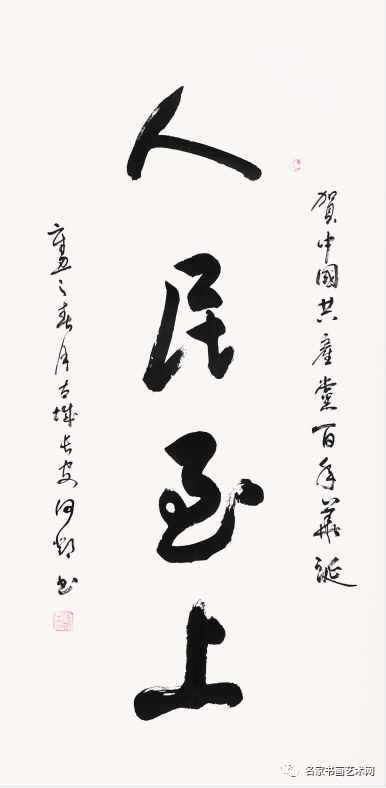 賀中國共產黨百年華誕
人民至上
辛丑之春月古城长安何书
名家书画艺术网